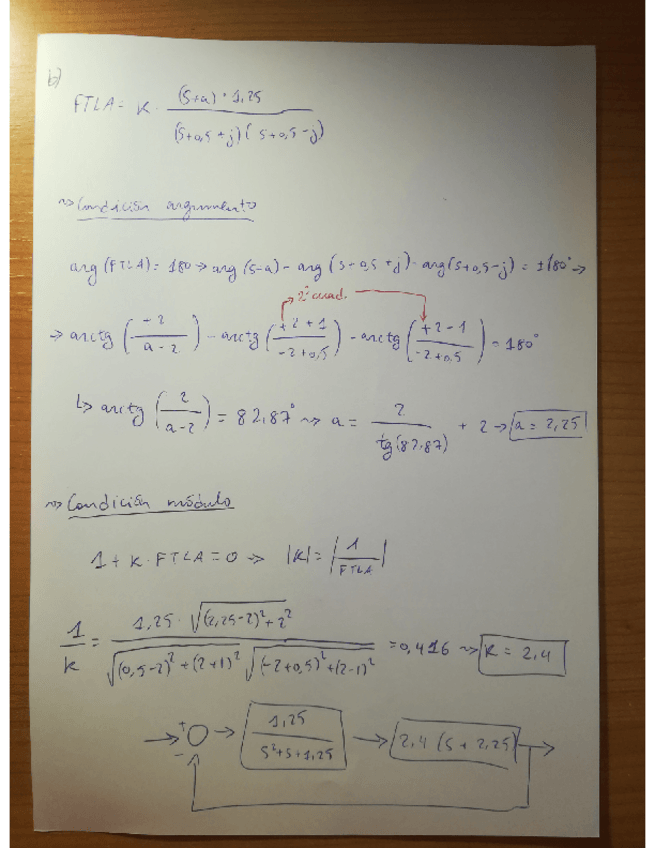 b)
FTLA = K · (s+a) · 1,25 / (s+0,5+j)(s+0,5-j)
~> Condición argumento
arg (FTLA) = 180 -> arg (s-a) - arg (s+0,5+j) - arg(s+0,5-j) = ±180° ->
2º cuad.
-> arctg (-2 / a-2) - arctg (+2+1 / -2+0,5) - arctg (+2-1 / -2+0,5) = 180°
↳ arctg (2 / a-2) = 82,87° ~> a = 2 / tg(82,87) + 2 -> a = 2,25
~> Condición módulo
1 + K · FTLA = 0 ~> |K| = |1 / FTLA|
1 / K = 1,25 · √((2,25-2)²+2²) / √((0,5-2)²+(2+1)²) √((-2+0,5)²+(2-1)²) = 0,416 ~> K = 2,4
+ - 1,25 / s²+s+1,25 2,4 (s + 2,25)